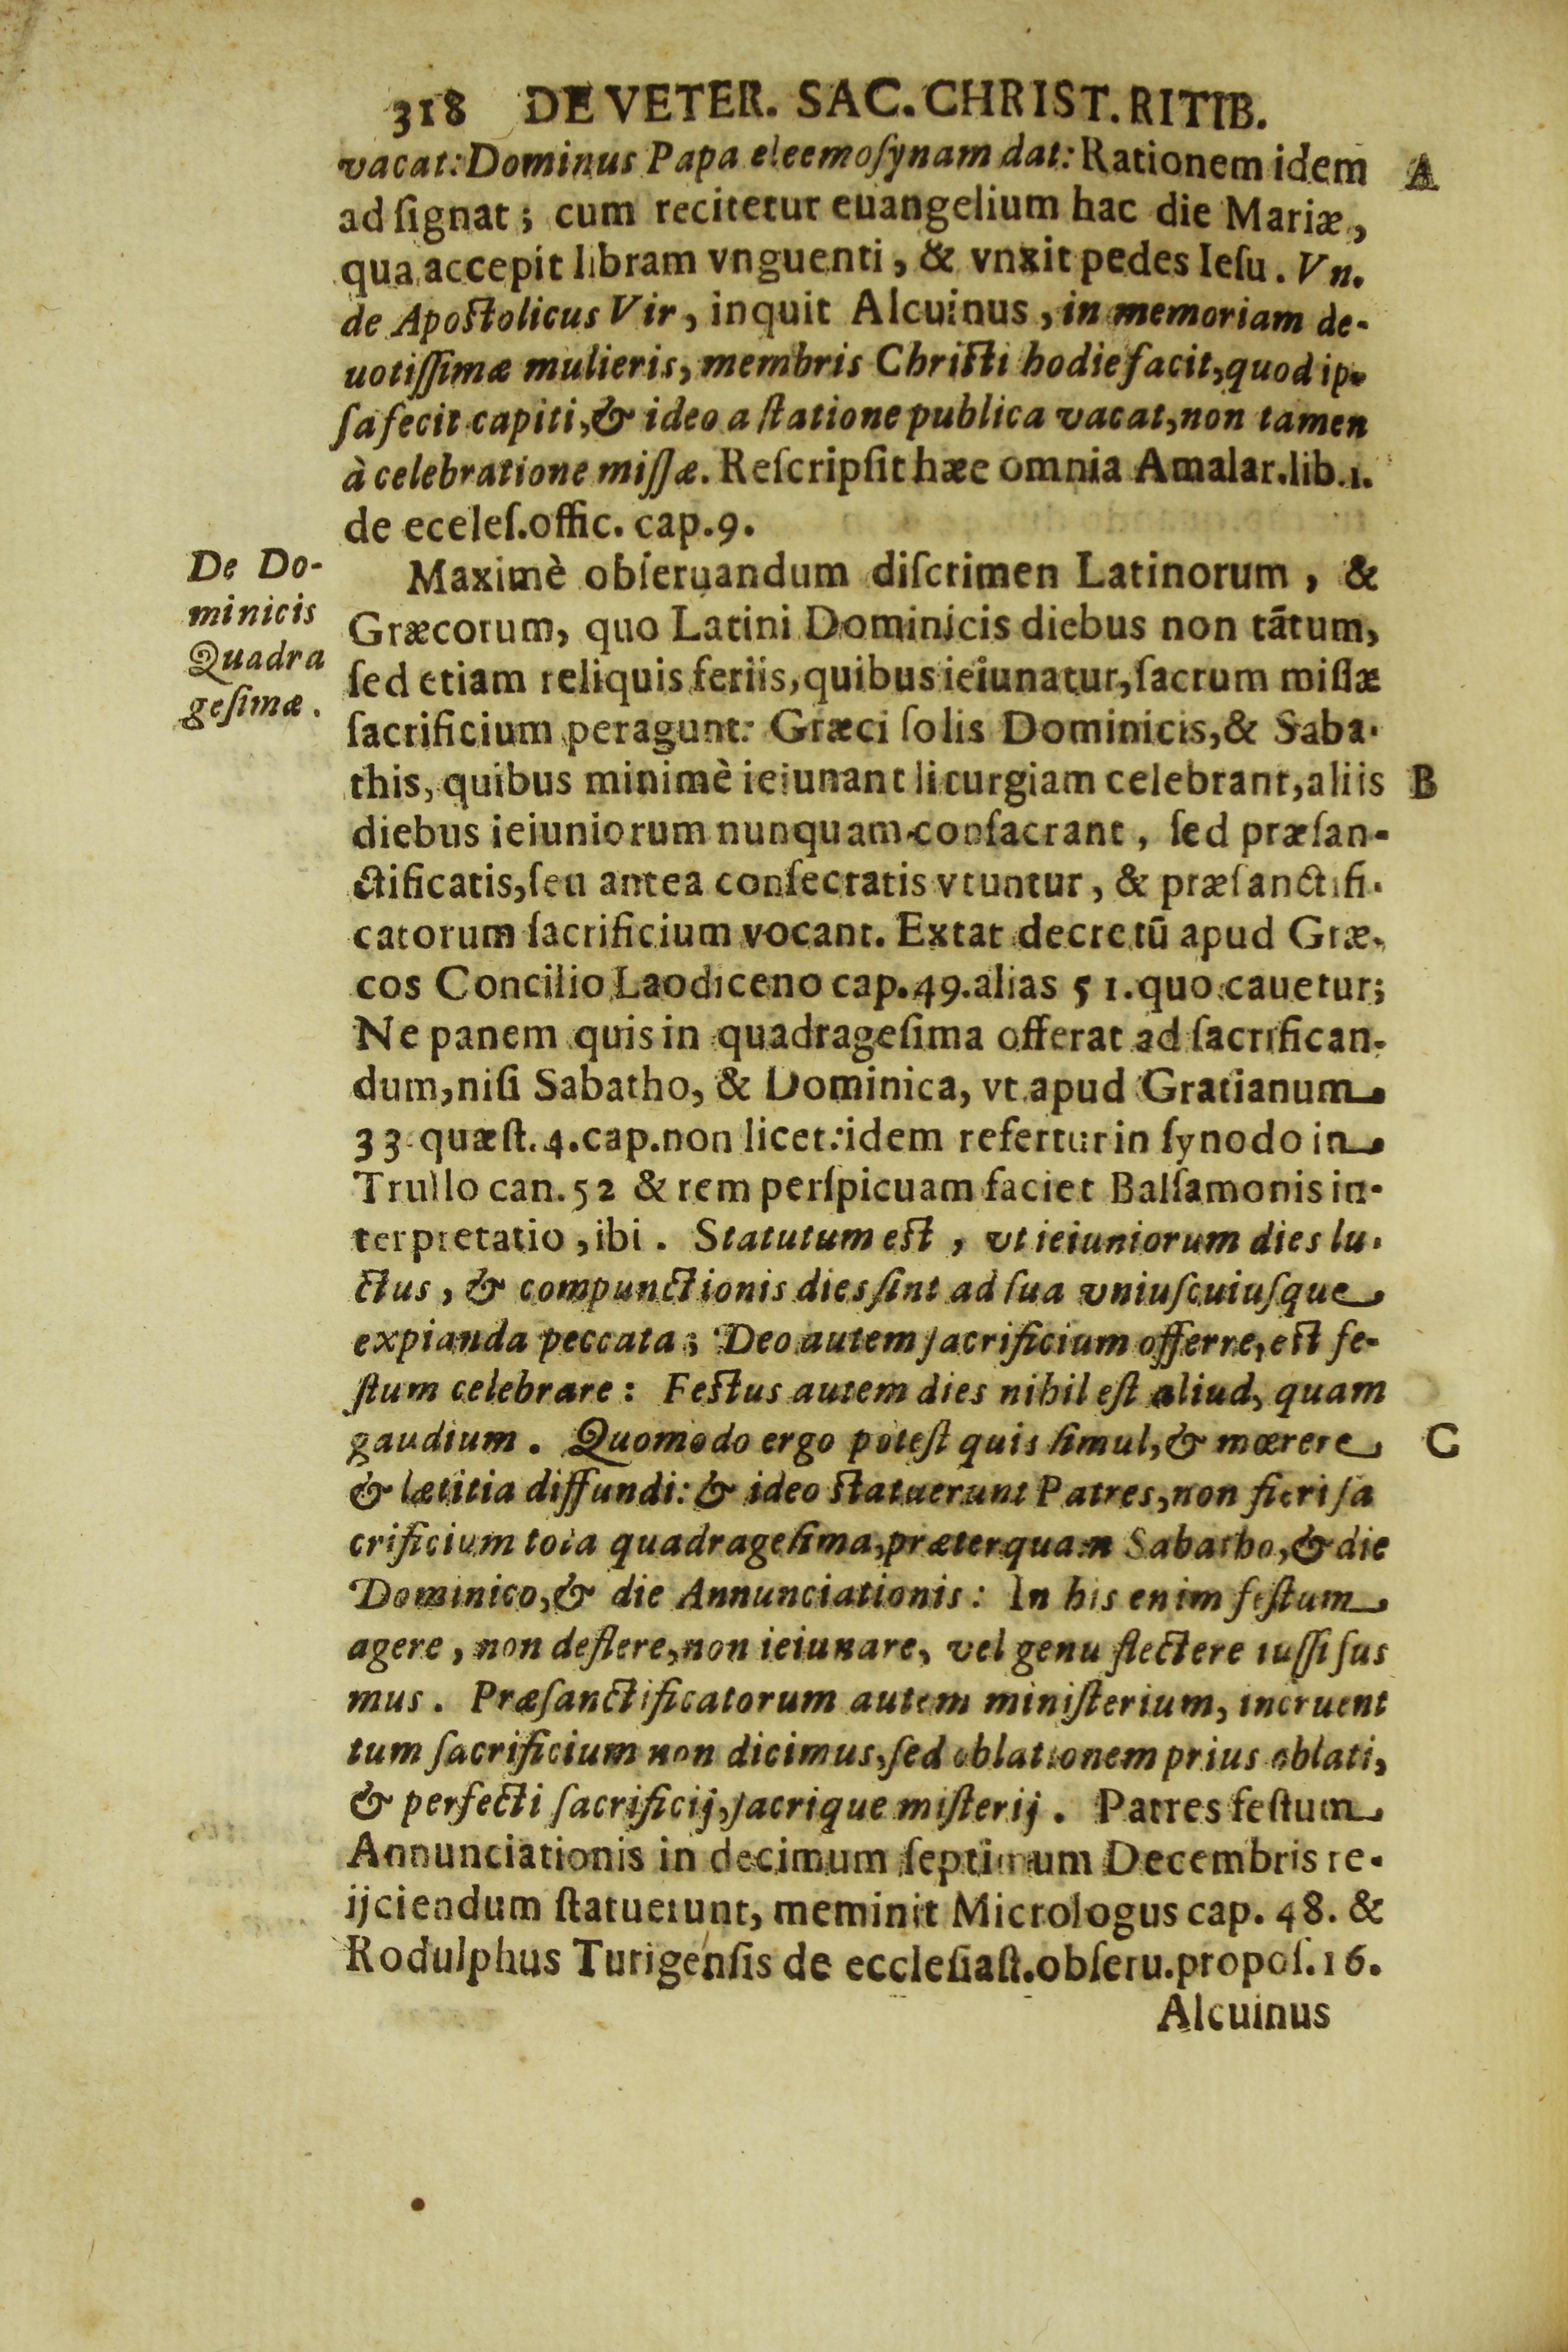 318 DE VETER. SAC. CHRIST. RITIB.
vacat: Dominus Papa eleemoſynam dat: Rationem idem A
ad ſignat; cum recitetur euangelium hac die Mariæ,
qua accepit libram vnguenti, & vnxit pedes Ieſu. Vn.
de Apoſtolicus Vir, inquit Alcuinus, in memoriam de-
uotiſſimæ mulieris, membris Chriſti hodie facit, quod ip-
ſa fecit capiti, & ideo a ſtatione publica vacat, non tamen
à celebratione miſſæ. Reſcripſit hæe omnia Amalar. lib. 1.
de eceleſ. offic. cap. 9.
De Do-
minicis
Quadra
geſimæ.
Maximè obſeruandum diſcrimen Latinorum, &
Græcorum, quo Latini Dominicis diebus non tātum,
ſed etiam reliquis feriis, quibus ieiunatur, ſacrum miſſæ
ſacrificium peragunt: Græci ſolis Dominicis, & Saba-
this, quibus minimè ieiunant liturgiam celebrant, aliis B
diebus ieiuniorum nunquam conſacrant, ſed præſan-
ctificatis, ſeu antea conſecratis vtuntur, & præſanctifi-
catorum ſacrificium vocant. Extat decretū apud Græ-
cos Concilio Laodiceno cap. 49. alias 51. quo cauetur;
Ne panem quis in quadrageſima offerat ad ſacrifican-
dum, niſi Sabatho, & Dominica, vt apud Gratianum
33 quæſt. 4. cap. non licet: idem refertur in ſynodo in
Trullo can. 52 & rem perſpicuam faciet Balſamonis in-
terpretatio, ibi. Statutum eſt, vt ieiuniorum dies lu-
ctus, & compunctionis dies ſint ad ſua vniuſcuiuſque
expianda peccata; Deo autem ſacrificium offerre, eſt fe-
ſtum celebrare: Feſtus autem dies nihil eſt aliud, quam
gaudium. Quomodo ergo poteſt quis ſimul, & mœrere C
& lætitia diffundi: & ideo ſtatuerunt Patres, non fieri ſa
crificium tota quadrageſima, præterquam Sabatho, & die
Dominico, & die Annunciationis: In his enim feſtum
agere, non deflere, non ieiunare, vel genu flectere iuſſi ſus
mus. Præſanctificatorum autem miniſterium, incruent
tum ſacrificium non dicimus, ſed oblationem prius oblati,
& perfecti ſacrificij, ſacrique miſterij. Patres feſtum
Annunciationis in decimum ſeptimum Decembris re-
ijciendum ſtatuerunt, meminit Micrologus cap. 48. &
Rodulphus Turigenſis de eccleſiaſt. obſeru. propoſ. 16.
Alcuinus